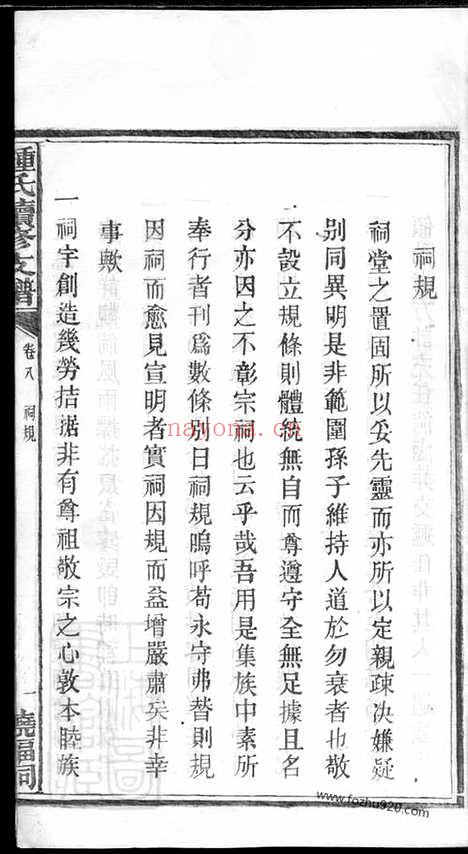 祠規
祠堂之置固所以妥先靈而亦所以定親疎决嫌疑
别同異明是非範圍孫子維持人道於勿衰者也敬
不設立規條則體統無自而尊遵守全無足據且名
分亦因之不彰宗祠也云乎哉吾用是集族中素所
奉行者刊爲數條別曰祠規嗚呼苟永守弗替則規
因祠而愈見宣明者實祠因規而益增嚴肅矣非幸
事歟
一祠宇創造幾勞拮据非有尊祖敬宗之心敦本睦族
鍾氏續修支譜
卷八 祠規
一
饒福祠
nayona.cn
www.fozhu920.com